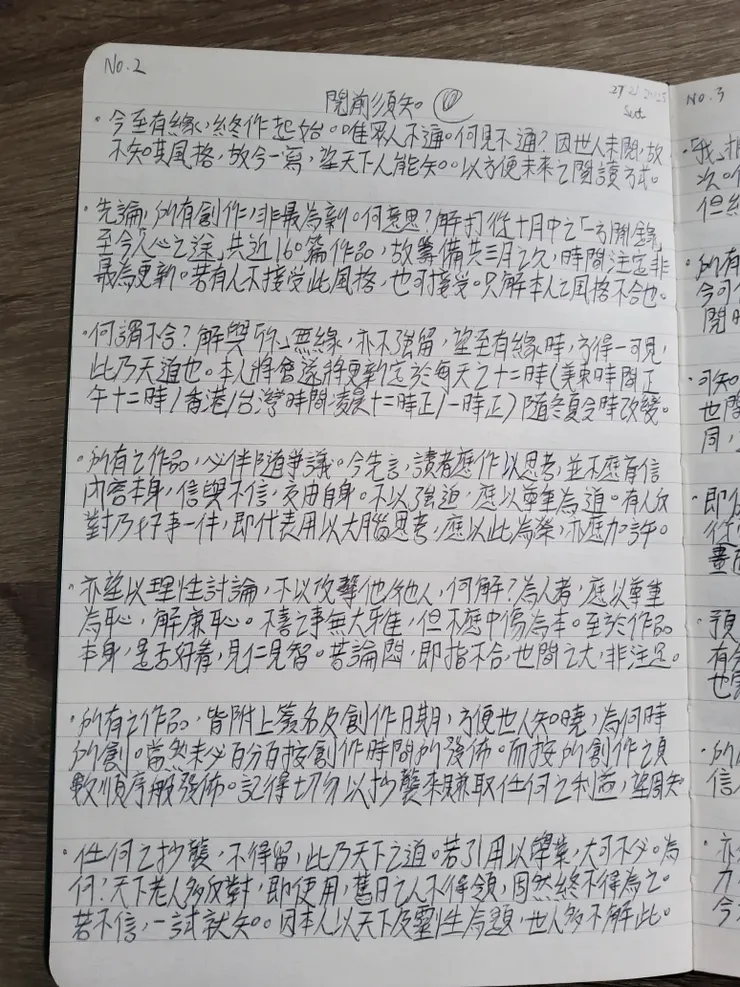 No.2
閱前須知。
27 21 2025
No.3
·今至有緣,終作起始。唯眾人不通。何見不通?因世人未閱,故
不知其風格,故今一寫,望天下人能知。以方便未來之閱讀方式。
·先論,所有創作,非最為新。何意思?解打從十月中之「方開錄」
至今「人心之途」共近160篇作品,故籌備共三月之久,時間注定非
最為更新。若有人不接受此風格,也可接受。只解本人之風格不合也。
·何謂不合?解與「你」無緣,亦不強留,望至有緣時,方得一可見,
此乃天道也。本人將會逐將更新定於每天之十二時(美東時間正
午十二時/香港/台灣時間凌晨十二時正/一時正)隨冬夏令時改變。
·所有之作品,必伴隨爭議。今先言,讀者應作以思考,並不應盲信
內容本身,信與不信,交由自身。不以強迫,應以尊重為道。有人反
對乃好事一件,即代表用以大腦思考,應以此為榮,亦應加許。
·亦望以理性討論,不以攻擊他/她人,何解?為人者,應以尊重
為恥,解廉恥。不喜之事無大雅,但不應中傷為本。至於作品
本身,是否好看,見仁見智。若論悶,即指不合,世間之大,非注足。
·所有之作品,皆附上簽名及創作日期,方便世人知曉,為何時
所創。當然未必百分百按創作時間所發佈。而按所創作之頁
數順序般發佈。記得切勿以抄襲來賺取任何之利益,望周知
·任何之抄襲,不得留,此乃天下之道。若引用以學業,大可不必。為
何?天下老人多反對,即使用,舊日之人不得領,固然終不得為之。
若不信,一試就知。因本人以天下及靈性為題,世人多不解此。